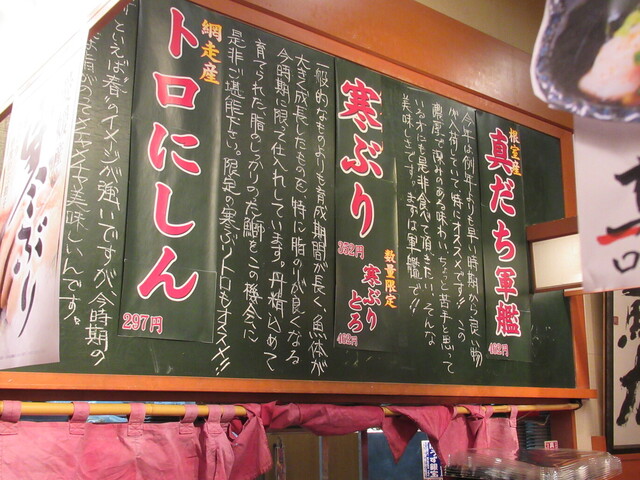 根室産
真だち軍艦
462円
今年は例年よりも早い時期から良い物
が入荷していて特にオススメです!! この
濃厚で深みのある味わい、ちょっと苦手と思って
いる方にも是非食べて頂きたい、そんな
美味しさです。まずは軍艦で!!
寒ぶり
352円
数量限定
寒ぶり
とろ
462円
一般的なものよりも育成期間が長く、魚体が
大きく成長したものを、特に脂のりが良くなる
今時期に限って仕入れしています。丹精込めて
育てられた脂じっくりのった鰤をこの機会に
是非ご堪能下さい。限定の寒ぶりトロもオススメ!!
網走産
トロにしん
297円
といえば"春"のイメージが強いですが、今時期の
美味しいんです。
寒ぶり